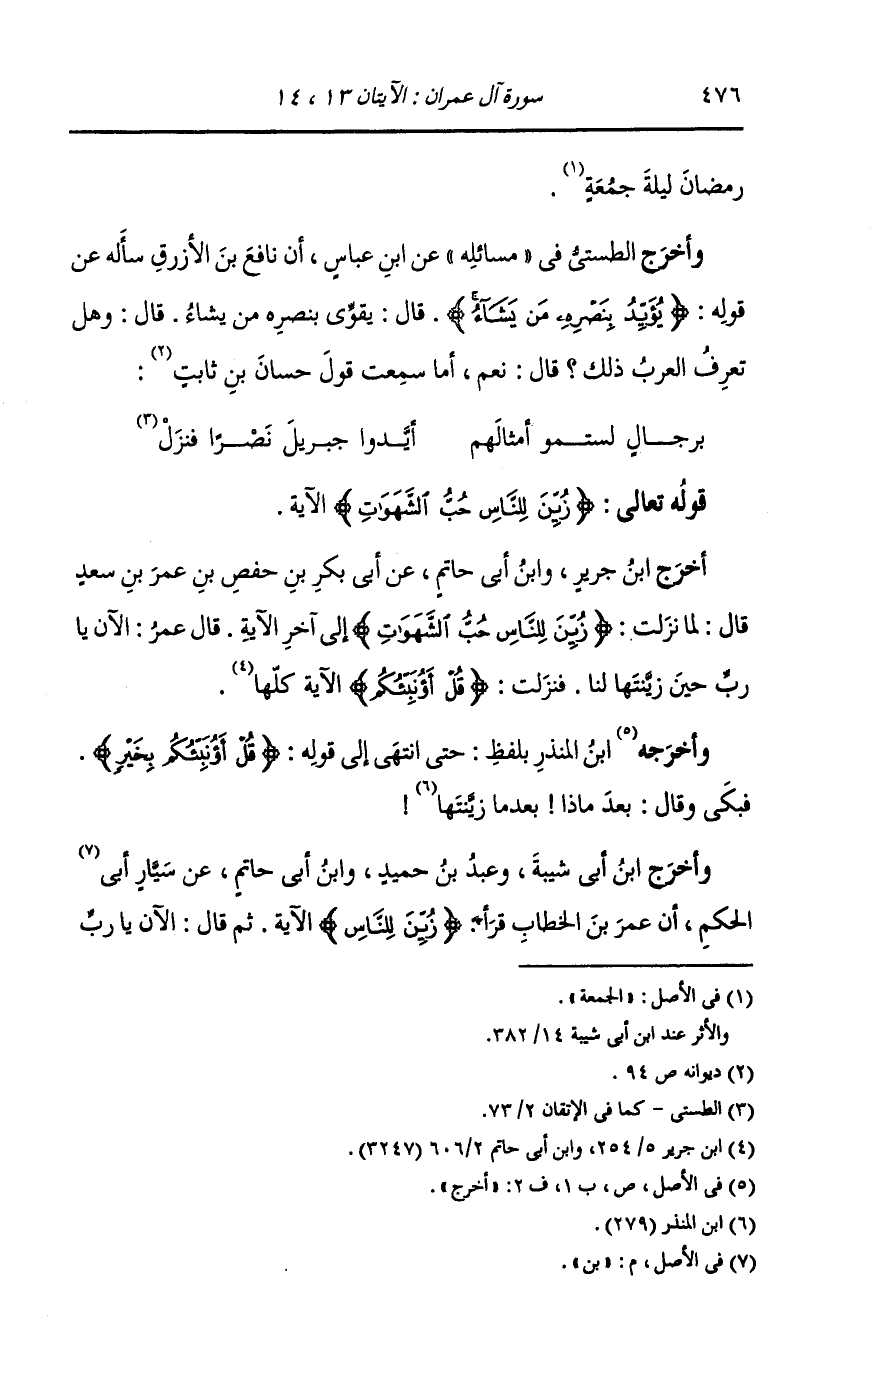 ٤٧٦ سورة آل عمران : الآيتان ١٣ ، ١٤
رمضانَ ليلةَ جمُعَةٍ(١) .
وأخرَج الطستىُّ فى « مسائلِه » عن ابنِ عباسٍ ، أن نافعَ بنَ الأزرقِ سأَله عن
قولِه : ﴿ يُؤَيِّدُ بِنَصْرِهِۦ مَن يَشَآءُ ﴾ . قال : يقوِّى بنصرِه من يشاءُ . قال : وهل
تعرِفُ العربُ ذلك ؟ قال : نعم ، أما سمِعت قولَ حسانَ بنِ ثابتٍ(٢) :
برجـــالٍ لستـــمو أمثالَهم أيَّـدوا جبـريلَ نَصْـرًا فنزَلْ(٣)
قولُه تعالى : ﴿ زُيِّنَ لِلنَّاسِ حُبُّ ٱلشَّهَوَٰتِ ﴾ الآية .
أخرَج ابنُ جريرٍ ، وابنُ أبى حاتمٍ ، عن أبى بكرِ بنِ حفصِ بنِ عمرَ بنِ سعدٍ
قال : لما نزَلت : ﴿ زُيِّنَ لِلنَّاسِ حُبُّ ٱلشَّهَوَٰتِ ﴾ إلى آخرِ الآيةِ . قال عمرُ : الآن يا
ربِّ حينَ زيَّنتَها لنا . فنزَلت : ﴿ قُلْ أَؤُنَبِّئُكُم ﴾ الآية كلّها(٤) .
وأخرَجه(٥) ابنُ المنذرِ بلفظِ : حتى انتهَى إلى قولِه : ﴿ قُلْ أَؤُنَبِّئُكُم بِخَيْرٍ ﴾ .
فبكَى وقال : بعدَ ماذا ! بعدما زيَّنتَها(٦) !
وأخرَج ابنُ أبى شيبةَ ، وعبدُ بنُ حميدٍ ، وابنُ أبى حاتمٍ ، عن سَيَّارٍ أبى(٧)
الحكمِ ، أن عمرَ بنَ الخطابِ قرَأ : ﴿ زُيِّنَ لِلنَّاسِ ﴾ الآية . ثم قال : الآن يا ربِّ
(١) فى الأصل : «الجمعة» .
والأثر عند ابن أبى شيبة ١٤/ ٣٨٢.
(٢) ديوانه ص ٩٤ .
(٣) الطستى - كما فى الإتقان ٢/ ٧٣.
(٤) ابن جرير ٥/ ٢٥٤، وابن أبى حاتم ٢/ ٦٠٦ (٣٢٤٧) .
(٥) فى الأصل ، ص ، ب ١، ف ٢: «أخرج» .
(٦) ابن المنذر (٢٧٩) .
(٧) فى الأصل ، م : «بن» .